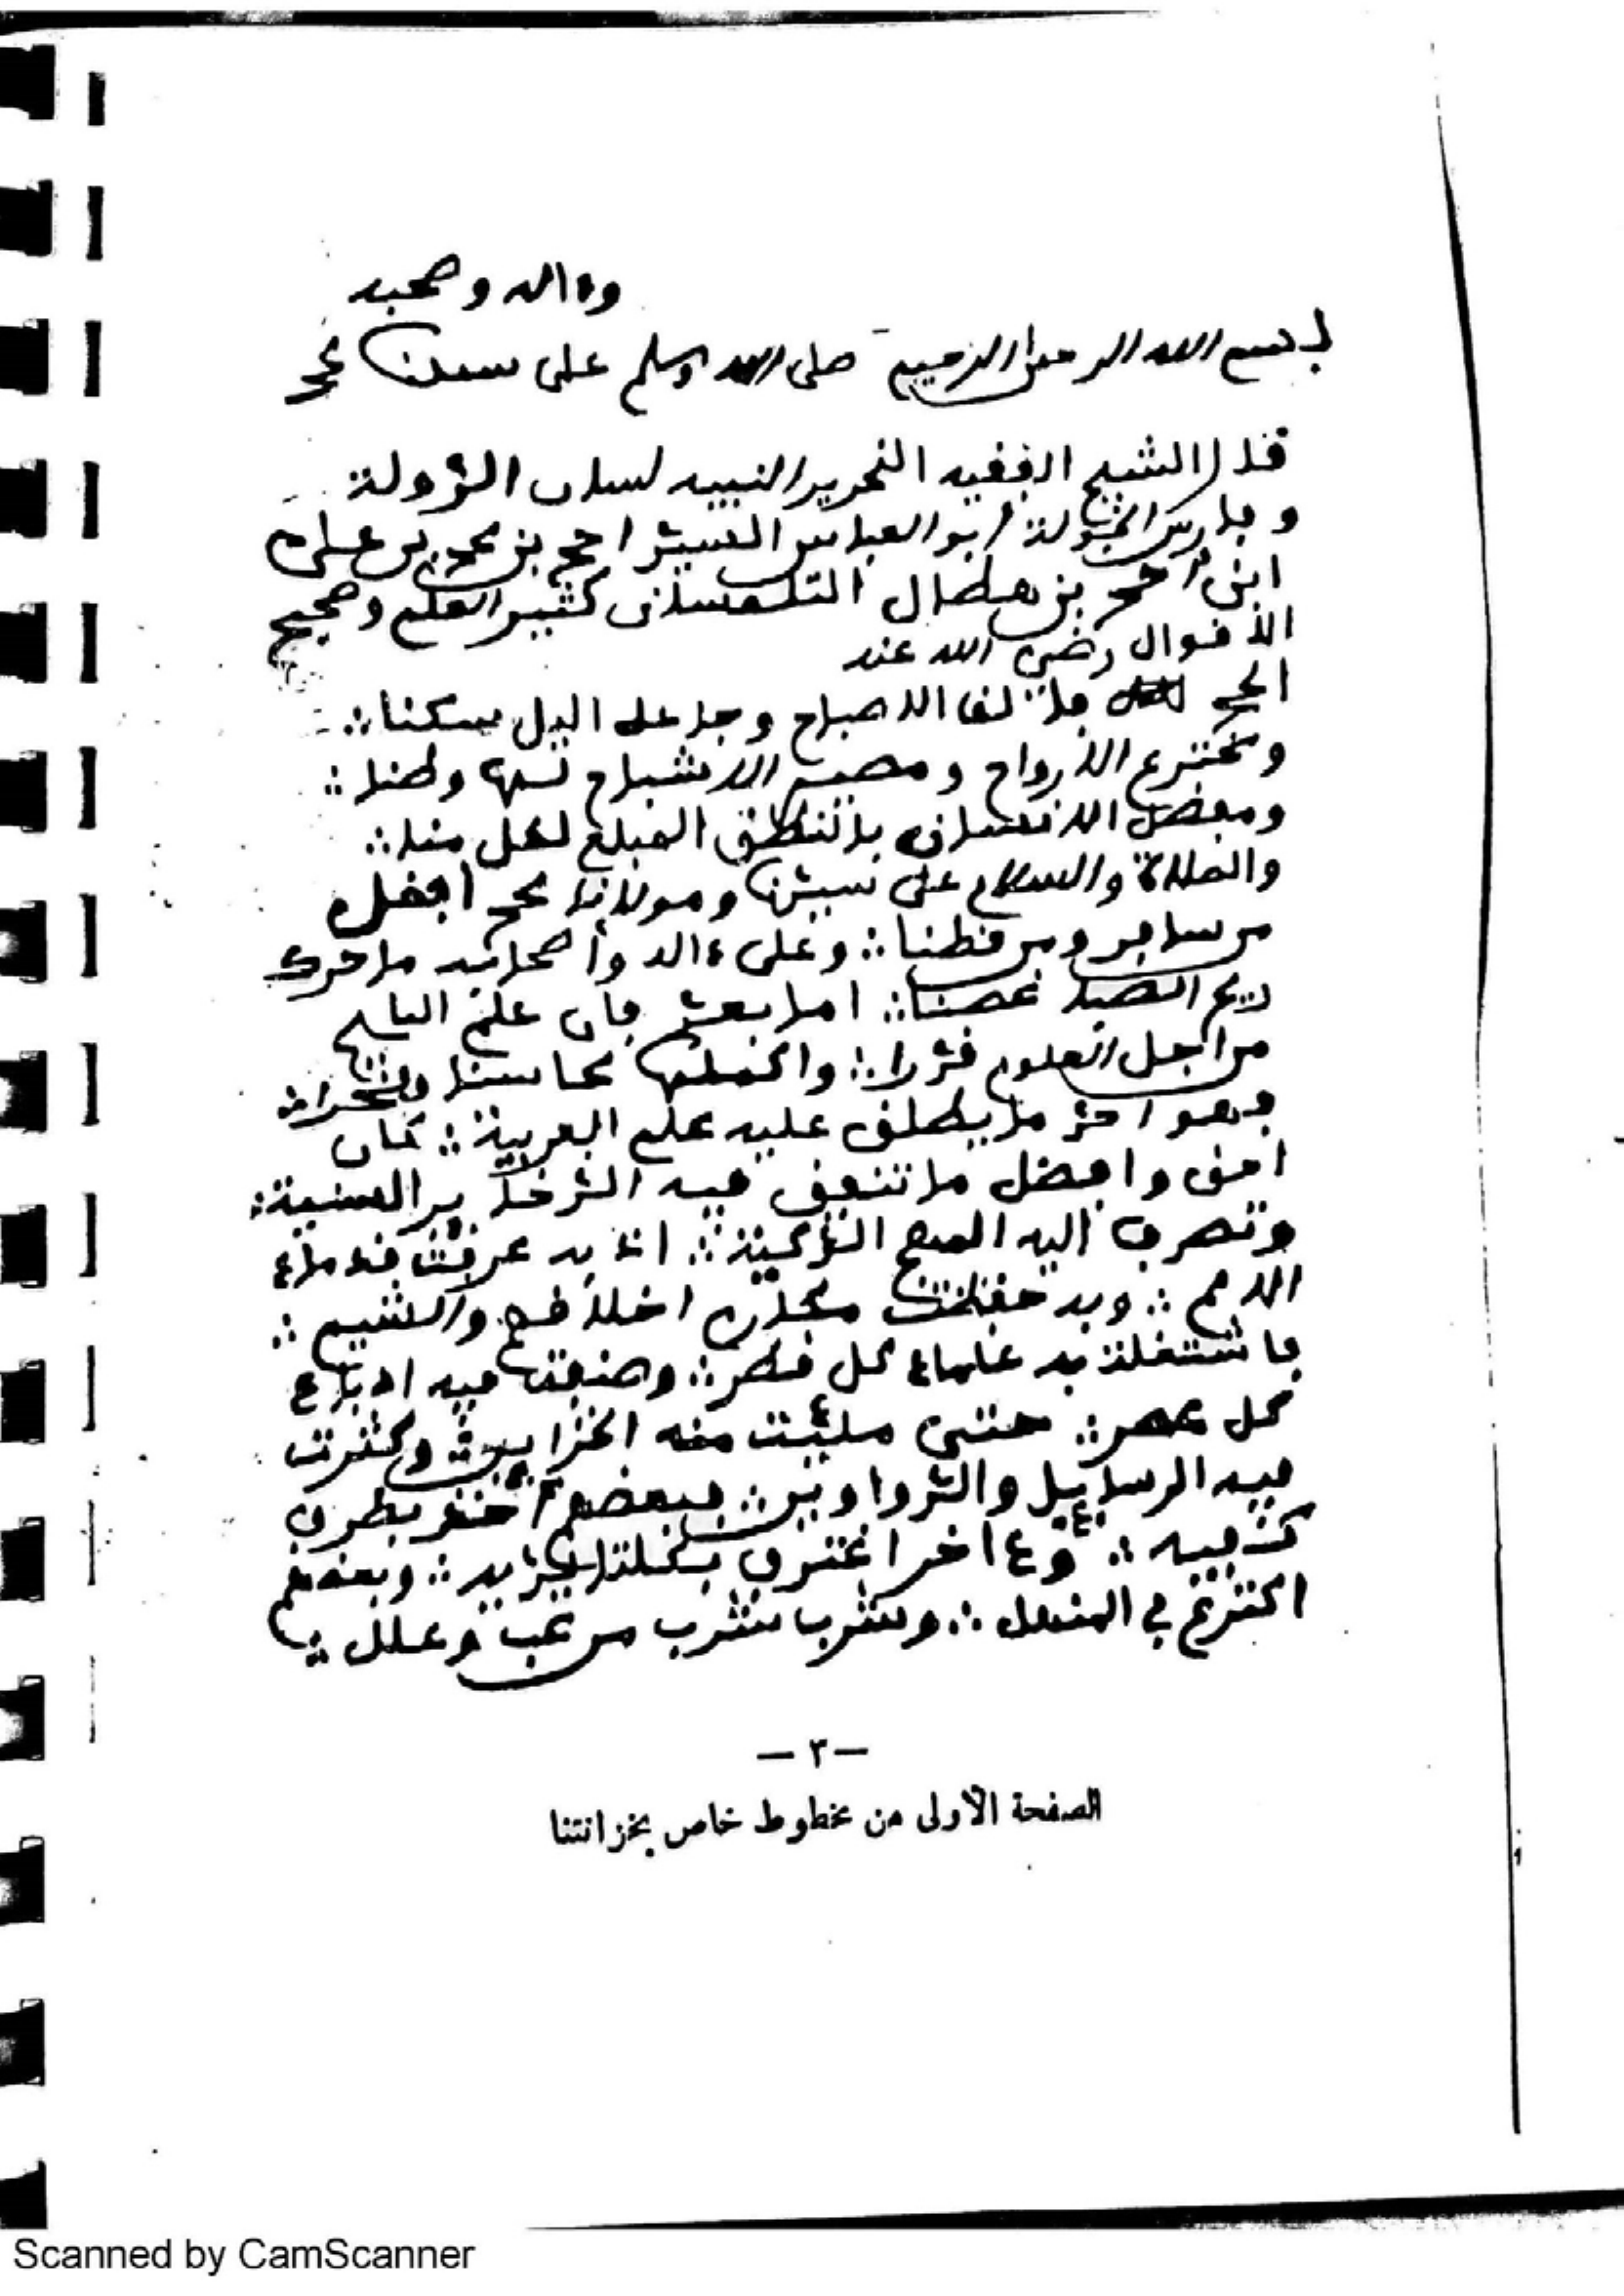 وءاله وصحبه
بسم الله الرحمن الرحيم صلى الله وسلم على سيدنا محمد
قال الشيخ الفقيه النحرير النبيه لسان الدولة
وفارس الجولة أبو العباس السيد احمد بن محمد بن علي
ابن احمد بن هطال التلمساني كثير العلم وصحيح
الاقوال رضي الله عنه
الحمد لله فالق الاصباح وجاعل اليل سكنا
ومخترع الارواح ومصير الاشباح لها وطنا
ومفضل الانسان بالنطق المبلغ لكل منا
والصلاة والسلام على سيدنا ومولانا محمد افضل
من سافر ومن قطنا وعلى ءاله وأصحابه ما حرك
ريح الصبا غصنا اما بعد فان علم التاريخ
من اجل العلوم قدرا واكملها محاسنا وفخرا
وهو احد ما يطلق عليه علم العربية كان
احق وافضل ما تنفق فيه الذخاير السنية
وتصرف اليه المهج الزكية اذ به عرفت قدماء
الامم وبه حفظت مكارم اخلاقهم والشيم
فاشتغلت به علماء كل قطر وصنفت فيه ادباء
كل عصر حتى مليت منه الخزاين وكثرت
فيه الرسايل والدواوين فبعضهم اخذ بطرف
كفيه وءاخر اغترف بكلتا يديه وبعضهم
اكترع في المنهل وشرب شرب من عب وعلل
— ٣ —
الصفحة الأولى من مخطوط خاص بخزانتنا
Scanned by CamScanner